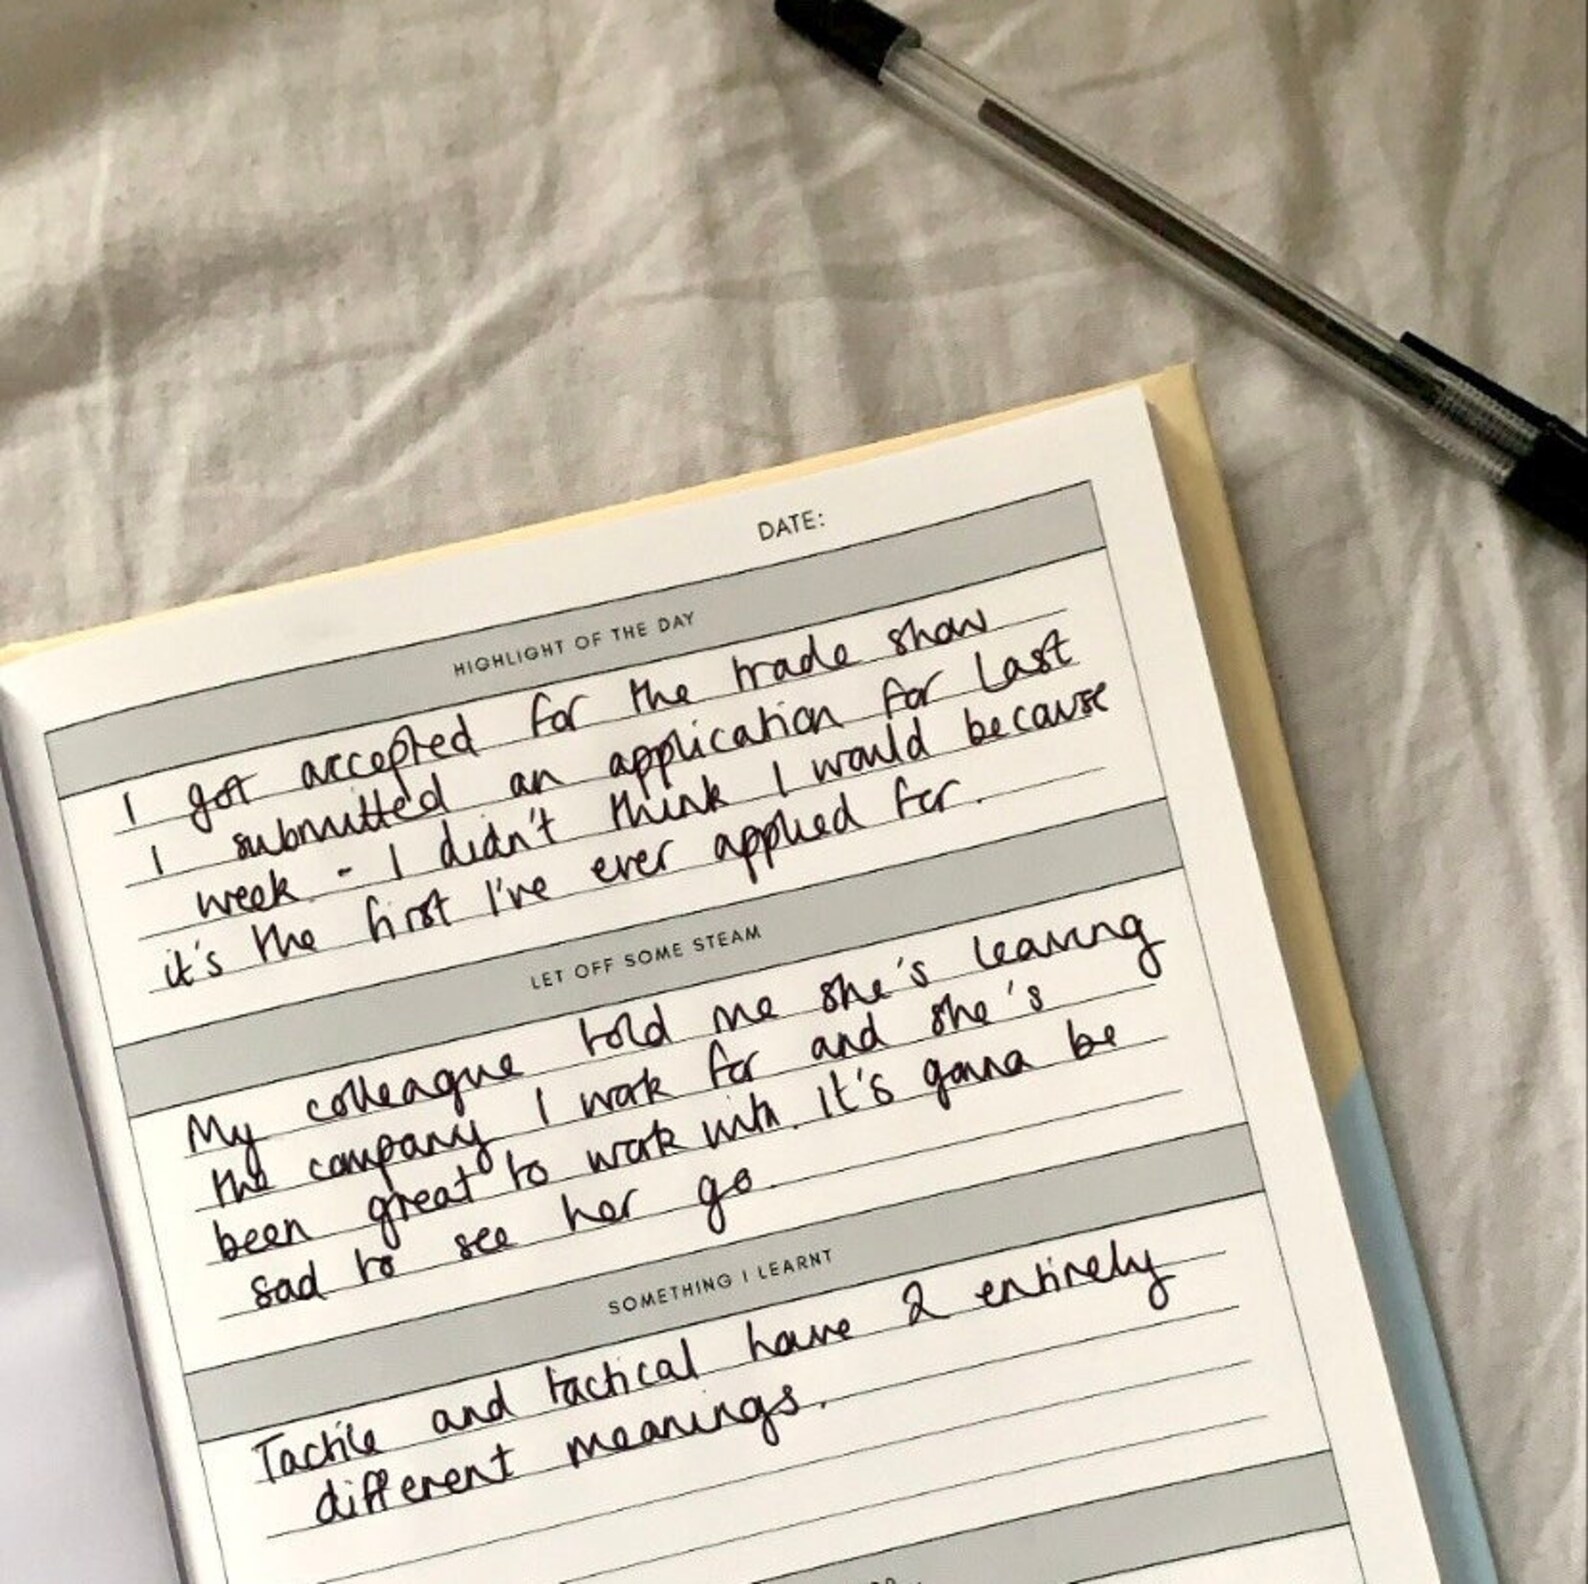 DATE:
HIGHLIGHT OF THE DAY
I got accepted for the trade show
I submitted an application for last
week - I didn't think I would because
it's the first I've ever applied for.
LET OFF SOME STEAM
My colleague told me she's leaving
the company I work for and she's
been great to work with. It's gonna be
sad to see her go.
SOMETHING I LEARNT
Tactile and tactical have 2 entirely
different meanings.